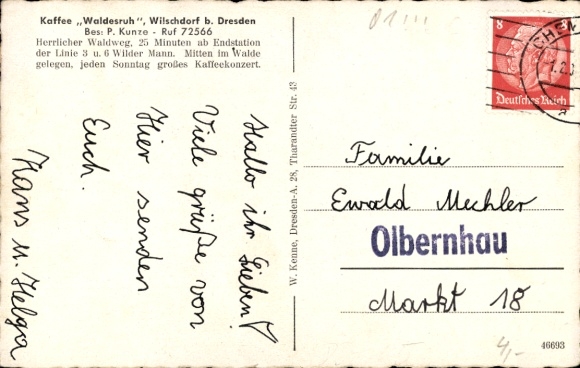 Kaffee „Waldesruh", Wilschdorf b. Dresden
Bes: P. Kunze - Ruf 72566
Herrlicher Waldweg, 25 Minuten ab Endstation
der Linie 3 u. 6 Wilder Mann. Mitten im Walde
gelegen, jeden Sonntag großes Kaffeekonzert.
Hallo ihr Lieben!
Viele grüße von
Hier senden
Euch.
Hans u. Helga
W. Kenne, Dresden-A. 28, Tharandter Str. 43
8
Deutsches Reich
CHEM
Familie
Ewald Mechler
Olbernhau
Markt 18
46693
4,-